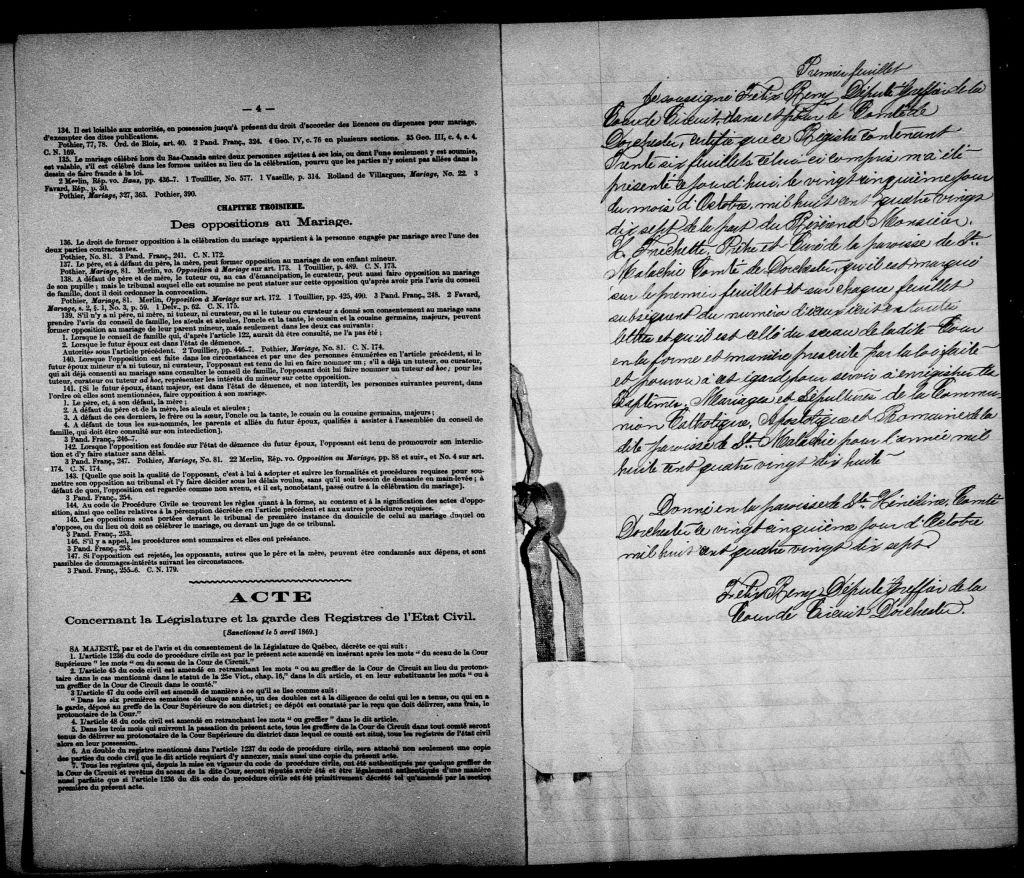 — 4 —
134. Il est loisible aux autorités, en possession jusqu'à présent du droit d'accorder des licences ou dispenses pour mariage,
d'exempter des dites publications.
Pothier, 77, 78. Ord. de Blois, art. 40. 2 Pand. Franç., 324. 4 Geo. IV, c. 76 en plusieurs sections. 35 Geo. III, c. 4, s. 4.
C. N. 169.
135. Le mariage célébré hors du Bas-Canada entre deux personnes sujettes à ses lois, ou dont l'une seulement y est soumise,
est valable, s'il est célébré dans les formes usitées au lieu de la célébration, pourvu que les parties n'y soient pas allées dans le
dessin de faire fraude à la loi.
2 Merlin, Rép. vo. Bans, pp. 436-7. 1 Touillier, No. 577. 1 Vazeille, p. 314. Rolland de Villargues, Mariage, No. 22. 3
Favard, Rép., p. 30.
Pothier, Mariage, 327, 363. Pothier, 390.
CHAPITRE TROISIEME.
Des oppositions au Mariage.
136. Le droit de former opposition à la célébration du mariage appartient à la personne engagée par mariage avec l'une des
deux parties contractantes.
Pothier, No. 81. 3 Pand. Franç., 241. C. N. 172.
137. Le père, et à défaut du père, la mère, peut former opposition au mariage de son enfant mineur.
Pothier, Mariage, 81. Merlin, vo. Opposition à Mariage sur art. 173. 1 Touillier, p. 489. C. N. 173.
138. A défaut de père et de mère, le tuteur, ou, au cas d'émancipation, le curateur, peut aussi faire opposition au mariage
de son pupille; mais le tribunal auquel elle est soumise ne peut statuer sur cette opposition qu'après avoir pris l'avis du conseil
de famille, dont il doit ordonner la convocation.
Pothier, Mariage, 81. Merlin, Opposition à Mariage sur art. 172. 1 Touillier, pp. 425, 490. 3 Pand. Franç., 248. 2 Favard,
Mariage, s. 2, § 1, No. 3, p. 59. 1 Delv., p. 62. C. N. 175.
139. S'il n'y a ni père, ni mère, ni tuteur, ni curateur, ou si le tuteur ou curateur a donné son consentement au mariage sans
prendre l'avis du conseil de famille, les aïeuls et aïeules, l'oncle et la tante, le cousin et la cousine germains, majeurs, peuvent
former opposition au mariage de leur parent mineur, mais seulement dans les deux cas suivants:
1. Lorsque le conseil de famille qui, d'après l'article 122, aurait dû être consulté, ne l'a pas été;
2. Lorsque le futur époux est dans l'état de démence.
Autorités sous l'article précédent. 2 Touillier, pp. 446-7. Pothier, Mariage, No. 81. C. N. 174.
140. Lorsque l'opposition est faite dans les circonstances et par une des personnes énumérées en l'article précédent, si le
futur époux mineur n'a ni tuteur, ni curateur, l'opposant est tenu de lui en faire nommer un; s'il a déjà un tuteur, ou curateur,
qui ait déjà consenti au mariage sans consulter le conseil de famille, l'opposant doit lui faire nommer un tuteur ad hoc; pour les
tuteur, curateur ou tuteur ad hoc, représenter les intérêts du mineur sur cette opposition.
141. [Si le futur époux, étant majeur, est dans l'état de démence, et non interdit, les personnes suivantes peuvent, dans
l'ordre où elles sont mentionnées, faire opposition à son mariage.
1. Le père, et, à son défaut, la mère;
2. A défaut du père et de la mère, les aïeuls et aïeules;
3. A défaut de ces derniers, le frère ou la sœur, l'oncle ou la tante, le cousin ou la cousine germains, majeurs;
4. A défaut de tous les sus-nommés, les parents et alliés du futur époux, qualifiés à assister à l'assemblée du conseil de
famille, qui doit être consulté sur son interdiction].
3 Pand. Franç., 246-7.
142. Lorsque l'opposition est fondée sur l'état de démence du futur époux, l'opposant est tenu de promouvoir son interdic-
tion et d'y faire statuer sans délai.
3 Pand. Franç., 247. Pothier, Mariage, No. 81. 22 Merlin, Rép. vo. Opposition au Mariage, pp. 88 et suiv., et No. 4 sur art.
174. C. N. 174.
143. [Quelle que soit la qualité de l'opposant, c'est à lui à adopter et suivre les formalités et procédures requises pour sou-
mettre son opposition au tribunal et l'y faire décider sous les délais voulus, sans qu'il soit besoin de demande en main-levée; à
défaut de quoi, l'opposition est regardée comme non avenu, et il est, nonobstant, passé outre à la célébration du mariage].
3 Pand. Franç., 254.
144. Au code de Procédure Civile se trouvent les règles quant à la forme, au contenu et à la signification des actes d'oppo-
sition, ainsi que celles relatives à la péremption décrétée en l'article précédent et aux autres procédures requises.
145. Les oppositions sont portées devant le tribunal de première instance du domicile de celui au mariage duquel on
s'oppose, ou du lieu où doit se célébrer le mariage, ou devant un juge de ce tribunal.
3 Pand. Franç., 253.
146. S'il y a appel, les procédures sont sommaires et elles ont préséance.
3 Pand. Franç., 253.
147. Si l'opposition est rejetée, les opposants, autres que le père et la mère, peuvent être condamnés aux dépens, et sont
passibles de dommages-intérêts suivant les circonstances.
3 Pand. Franç., 255-6. C. N. 179.
ACTE
Concernant la Législature et la garde des Registres de l'Etat Civil.
[Sanctionné le 5 avril 1869.]
SA MAJESTÉ, par et de l'avis et du consentement de la Législature de Québec, décrète ce qui suit:
1. L'article 1236 du code de procédure civile est par le présent acte amendé en insérant après les mots " du sceau de la Cour
Supérieure " les mots " ou du sceau de la Cour de Circuit."
2. L'article 45 du code civil est amendé en retranchant les mots " ou au greffier de la Cour de Circuit au lieu du protono-
taire dans le cas mentionné dans le statut de la 25e Vict., chap. 16," dans le dit article, et en leur substituants les mots " ou à
un greffier de la Cour de Circuit dans le comté."
3 L'article 47 du code civil est amendé de manière à ce qu'il se lise comme suit:
" Dans les six premières semaines de chaque année, un des doubles est à la diligence de celui qui les a tenus, ou qui en a
la garde, déposé au greffe de la Cour Supérieure de son district; ce dépôt est constaté par le reçu que doit délivrer, sans frais, le
protonotaire de la Cour."
4. L'article 48 du code civil est amendé en retranchant les mots " ou greffier " dans le dit article.
5. Dans les trois mois qui suivront la passation du présent acte, tous les greffiers de la Cour de Circuit dans tout comté seront
tenus de délivrer au protonotaire de la Cour Supérieure du district dans lequel ce comté est situé, tous les registres de l'état civil
alors en leur possession.
6. Au double du registre mentionné dans l'article 1237 du code de procédure civile, sera attaché non seulement une copie
des parties du code civil que le dit article requiert d'y annexer, mais aussi une copie du présent acte.
7. Tous les registres qui, depuis la mise en vigueur du code de procédure civile, ont été authentiqués par quelque greffier de
la Cour de Circuit et revêtus du sceau de la dite Cour, seront réputés avoir été et être légalement authentiqués d'une manière
aussi parfaite que si l'article 1236 du dit code de procédure civile eût été primitivement décrété tel qu'amendé par la section
première du présent acte.
Premier feuillet
Je soussigné Felix Remy Député Greffier de la
Cour de Circuit dans et pour le Comté de
Dorchester, certifie que ce Registre contenant
Trente six feuillets celui-ci compris m'a été
présenté ce jourd'hui, le vingt cinquième jour
du mois d'Octobre, mil huit cent quatre vingt
dix sept de la part du Révérend Monsieur
H. Frechette, Prêtre et Curé de la paroisse de St.
Malachie Comté de Dorchester, qu'il est marqué
sur le premier feuillet et sur chaque feuillet
subséquent du numéro d'icelui écrit en toutes
lettres et qu'il est scellé du sceau de la dite Cour
en la forme et manière prescrite par la loi faite
et pourvu à cet égard pour servir à enregistrer les
Baptêmes, Mariages et Sépultures de la Commu-
nion Catholique, Apostolique et Romaine de la
dite paroisse de St. Malachie pour l'année mil
huit cent quatre vingt dix huit
Donné en la paroisse de Ste. Hénédine, Comté
Dorchester, ce vingt cinquième jour d'Octobre
mil huit cent quatre vingt dix sept.
Felix Remy, Député Greffier de la
Cour de Circuit Dorchester.